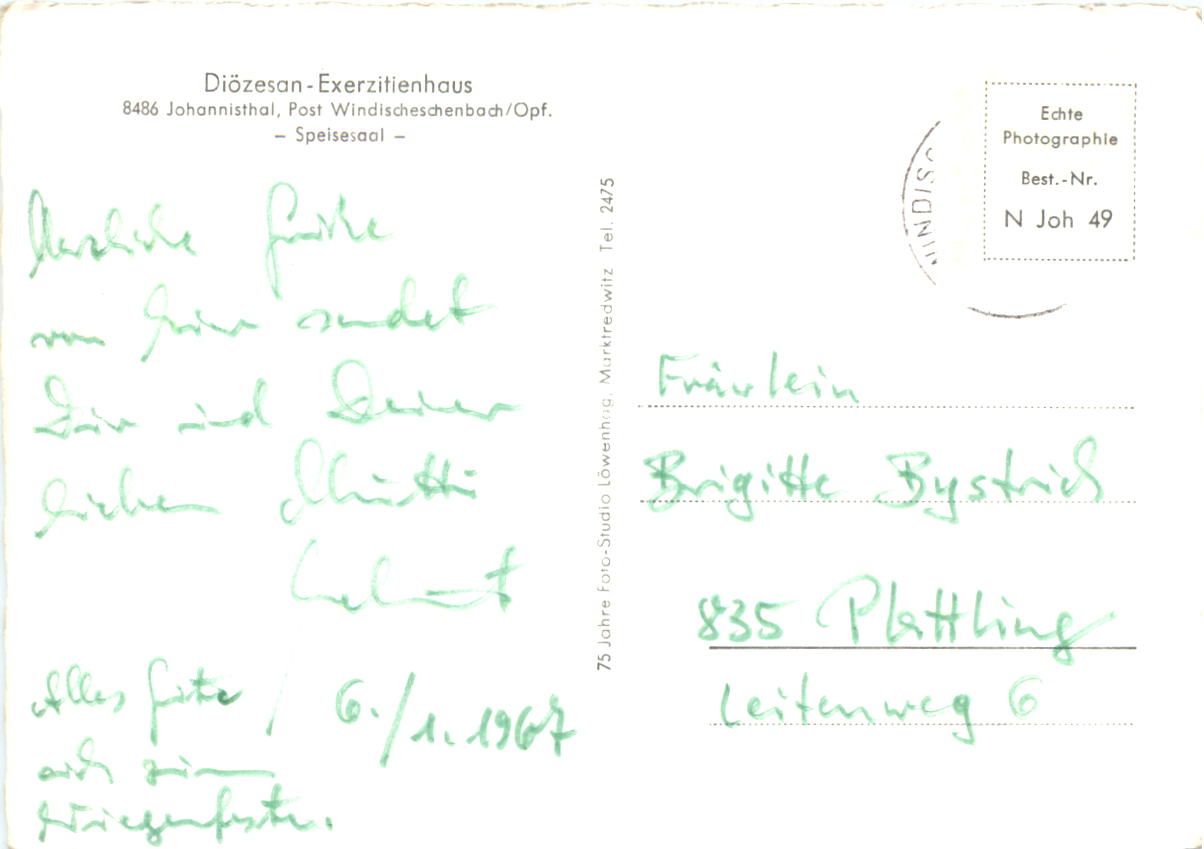 Diözesan-Exerzitienhaus
8486 Johannisthal, Post Windischeschenbach/Opf.
– Speisesaal –
Herzliche Grüße
von hier sendet
Dir und Deiner
lieben Mutti
Helmut
Alles Gute / 6./1.1967
auch zum
Wiegenfeste.
75 Jahre Foto-Studio Löwenhag, Marktredwitz Tel. 2475
WINDISC
Echte
Photographie
Best.-Nr.
N Joh 49
Fräulein
Brigitte Bystrich
835 Plattling
Leitenweg 6